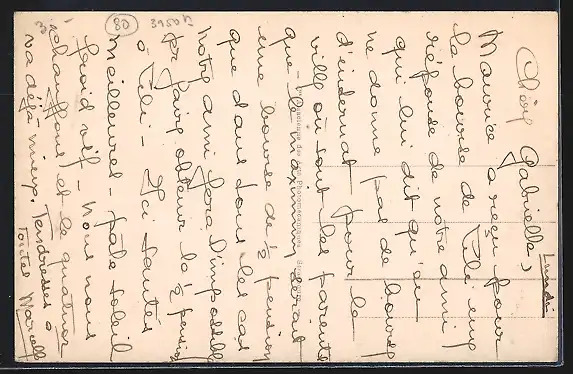 Lundi
Chère Gabrielle,
Maurice a reçu pour
la bourse de Féli une
réponse de notre ami
qui lui dit qu'on
ne donne pas de bourse
d'internat pour la
ville où sont les parents
que le maximum serait
une bourse de ½ pension
que dans tous les cas
notre ami fera l'impossible
pr faire obtenir la ½ pension
à Féli - Ici santés
meilleures - pâle soleil
froid vif - Nous nous
chauffons et le quatuor
va déjà mieux. Tendresses à
toutes Marcelle
80